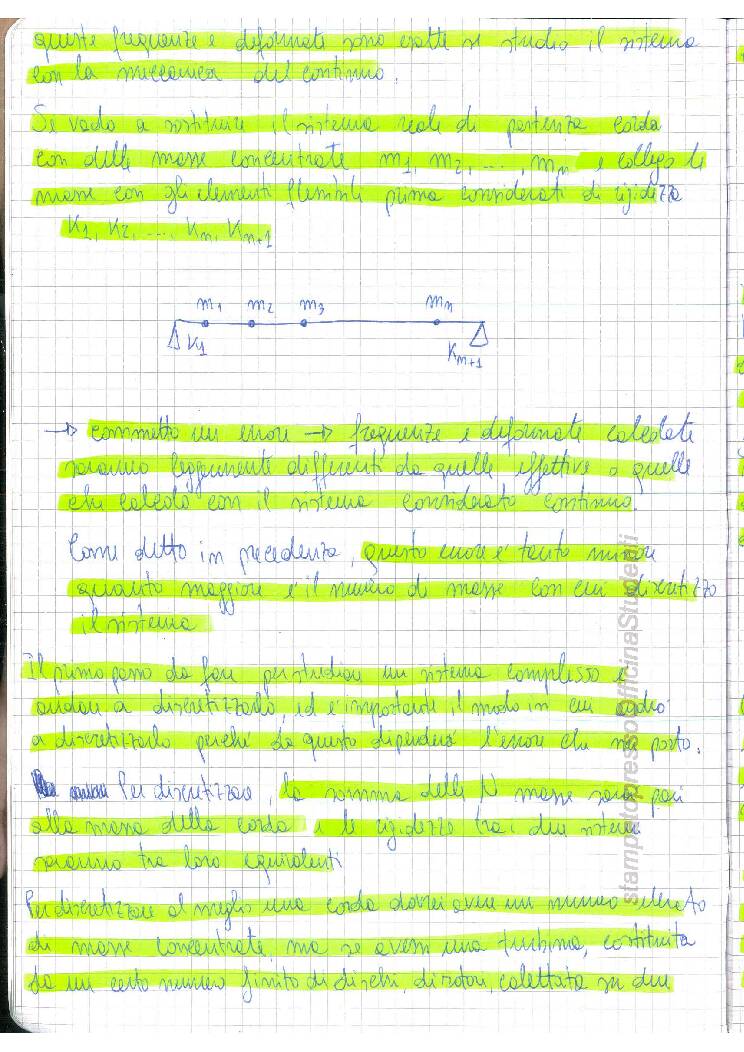 queste frequenze e deformate sono esatte se studio il sistema
con la meccanica del continuo.
Se vado a sostituire il sistema reale di partenza corda
con delle masse concentrate m1, m2, ..., mn e collego le
masse con gli elementi flessibili prima considerati di rigidezza
K1, K2, ..., Kn, Kn+1
m1 m2 m3 mn
K1 Kn+1
→ commetto un errore → frequenze e deformate calcolate
saranno leggermente differenti da quelle effettive o quelle
che calcolo con il sistema considerato continuo.
Come detto in precedenza, questo errore è tanto minore
quanto maggiore è il numero di masse con cui discretizzo
il sistema
Il primo passo da fare per studiare un sistema complesso è
andare a discretizzarlo, ed è importante il modo in cui andrò
a discretizzarlo perché da questo dipenderà l'errore che mi porto.
Per discretizzare, la somma delle N masse sarà pari
alla massa della corda e le rigidezze tra i due sistemi
saranno tra loro equivalenti
Per discretizzare al meglio una corda dovrei avere un numero elevato
di masse concentrate, ma se avessi una turbina, costituita
da un certo numero finito di dischi, di rotori, calettata su due
stampatopressoOfficinaStudenti